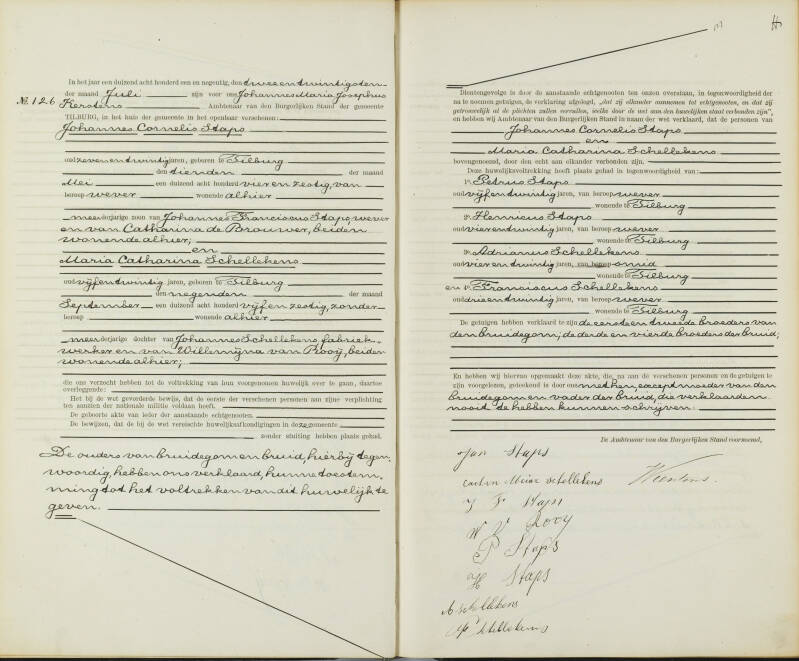 In het jaar een duizend acht honderd een en negentig, den twee en twintigsten
der maand Juli zijn voor ons Johannes Maria Josephus
№ 126 Kerstens Ambtenaar van den Burgerlijken Stand der gemeente
TILBURG, in het huis der gemeente in het openbaar verschenen:
Johannes Cornelis Staps
oud zeven en twintig jaren, geboren te Tilburg
den tienden der maand
Mei een duizend acht honderd vier en zestig, van
beroep wever wonende alhier
meerderjarige zoon van Johannes Franciscus Staps, wever
en van Catharina de Brouwer, beiden
wonende alhier;
en
Maria Catharina Schellekens
oud vijf en twintig jaren, geboren te Tilburg
den negenden der maand
September een duizend acht honderd vijf en zestig, zonder
beroep wonende alhier
meerderjarige dochter van Johannes Schellekens, fabriek-
werker en van Willemijna van Rooij, beiden
wonende alhier;
die ons verzocht hebben tot de voltrekking van hun voorgenomen huwelijk over te gaan, daartoe
overleggende:
Het bij de wet gevorderde bewijs, dat de eerste der verschenen personen aan zijne verplichting
ten aanzien der nationale militie voldaan heeft.
De geboorte akten van ieder der aanstaande echtgenooten.
De bewijzen, dat de bij de wet vereischte huwelijksafkondigingen in deze gemeente
zonder stuiting hebben plaats gehad.
De ouders van bruidegom en bruid, hierbij tegen-
woordig, hebben ons verklaard, hunne toestem-
ming tot het voltrekken van dit huwelijk te
geven.
Dientengevolge is door de aanstaande echtgenooten ten onzen overstaan, in tegenwoordigheid der
na te noemen getuigen, de verklaring afgelegd, „dat zij elkander aannemen tot echtgenooten, en dat zij
getrouwelijk al de plichten zullen vervullen, welke door de wet aan den huwelijken staat verbonden zijn",
en hebben wij Ambtenaar van den Burgerlijken Stand in naam der wet verklaard, dat de personen van
Johannes Cornelis Staps
en
Maria Catharina Schellekens
bovengenoemd, door den echt aan elkander verbonden zijn.
Deze huwelijksvoltrekking heeft plaats gehad in tegenwoordigheid van:
1º. Petrus Staps
oud vijf en twintig jaren, van beroep wever
wonende te Tilburg
2º. Henricus Staps
oud vier en twintig jaren, van beroep wever
wonende te Tilburg
3º. Adrianus Schellekens
oud vier en twintig jaren, van beroep smid
wonende te Tilburg
en 4º. Franciscus Schellekens
oud drie en twintig jaren, van beroep wever
wonende te Tilburg
De getuigen hebben verklaard te zijn de eerste en tweede broeders van
den bruidegom, de derde en vierde broeders der bruid;
En hebben wij hiervan opgemaakt deze akte, die, na aan de verschenen personen en de getuigen te
zijn voorgelezen, geteekend is door ons met hen, except moeder van den
bruidegom en vader der bruid, die verklaarden
nooit te hebben kunnen schrijven.
De Ambtenaar van den Burgerlijken Stand voornoemd,
Jan Staps
Schellekens Kerstens.
J F Staps
W V Rooy
P Staps
H Staps
A Schellekens
Schellekens